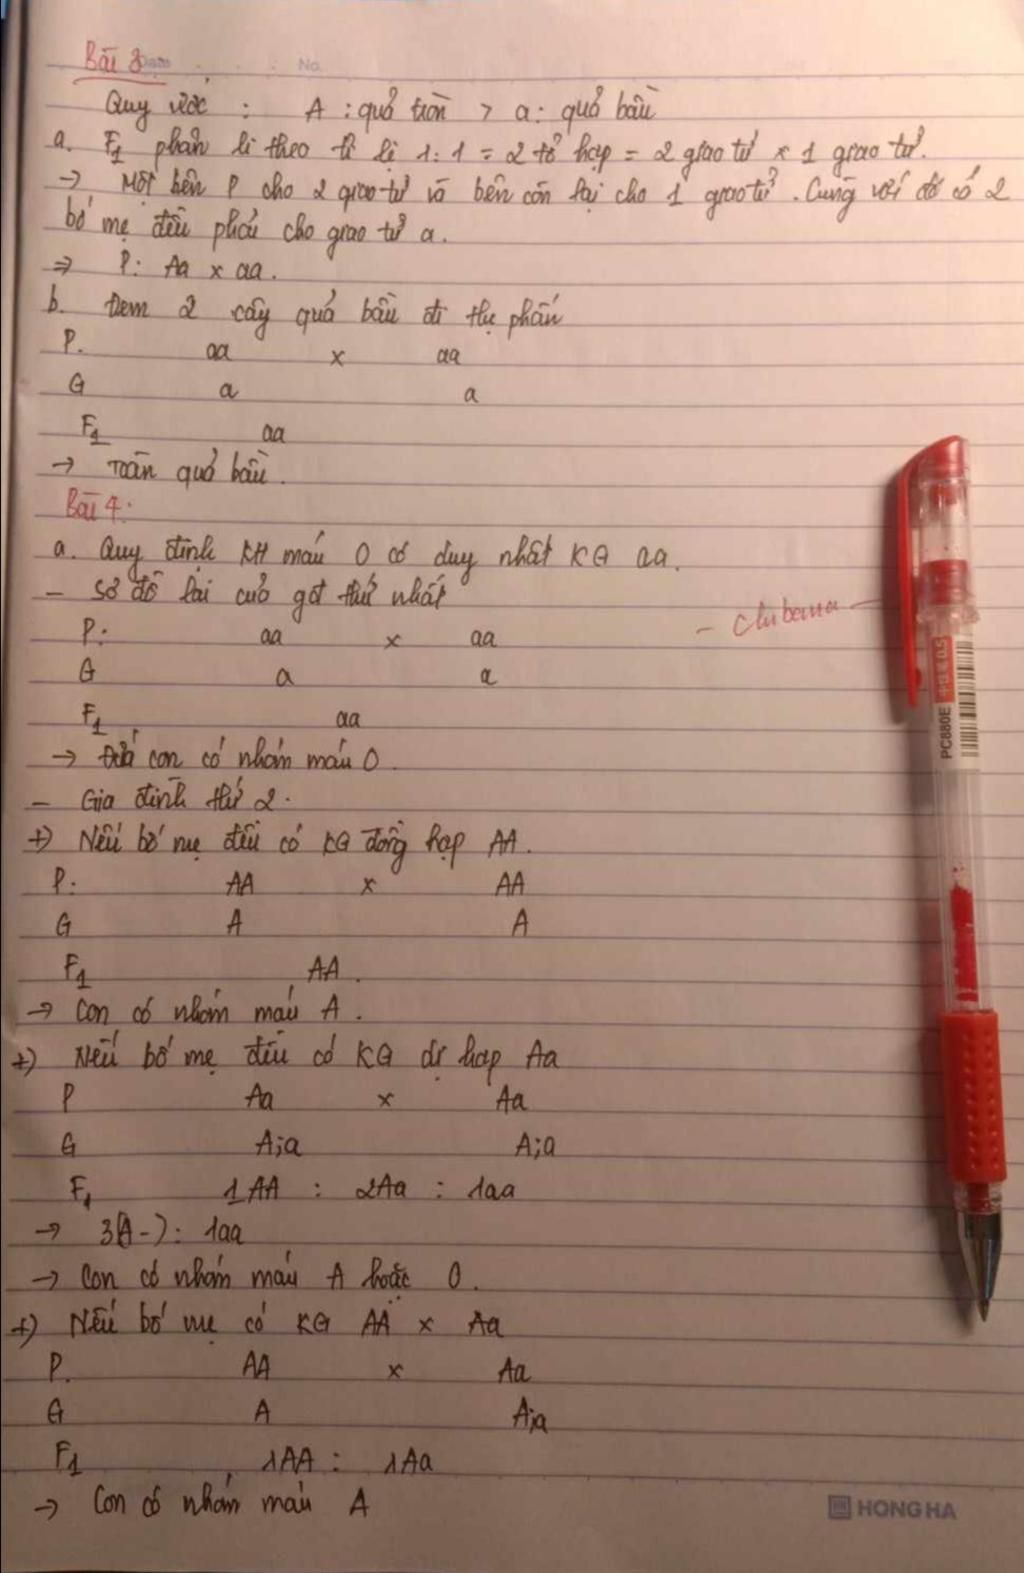 Bài 3 Date No.
Quy ước : A : quả tròn > a : quả bầu
a. F1 phân li theo tỉ lệ 1:1 = 2 tổ hợp = 2 giao tử x 1 giao tử.
→ Một bên P cho 2 giao tử và bên còn lại cho 1 giao tử. Cùng với đó có 2
bố mẹ đều phải cho giao tử a.
⇒ P: Aa x aa.
b. Đem 2 cây quả bầu đi thụ phấn
P. aa x aa
G a a
F1 aa
→ Toàn quả bầu.
Bài 4:
a. Quy định KH máu O có duy nhất KG aa.
- Sơ đồ lai cuả gđ thứ nhất
- Chibana -
P: aa x aa
G a a
F1 aa
→ Đứa con có nhóm máu O.
- Gia đình thứ 2.
+) Nếu bố mẹ đều có KG đồng hợp AA.
P: AA x AA
G A A
F1 AA.
→ Con có nhóm máu A.
+) Nếu bố mẹ đều có KG dị hợp Aa
P Aa x Aa
G A;a A;a
F1 1AA : 2Aa : 1aa
→ 3(A-): 1aa
→ Con có nhóm máu A hoặc O.
+) Nếu bố mẹ có KG AA x Aa
P. AA x Aa
G A A;a
F1 1AA : 1Aa
→ Con có nhóm máu A
HONG HA
PC880E 中性笔 0.5